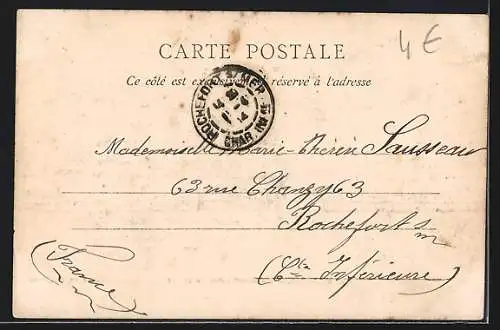 4 €
CARTE POSTALE
Ce côté est exclusivement réservé à l'adresse
ROCHEFORT S MER
CHAR. INFRE
Mademoiselle Marie-Thérèse Sausseau
63 rue Chanzy 63
Rochefort s/m
(Cte Inférieure)
(France)